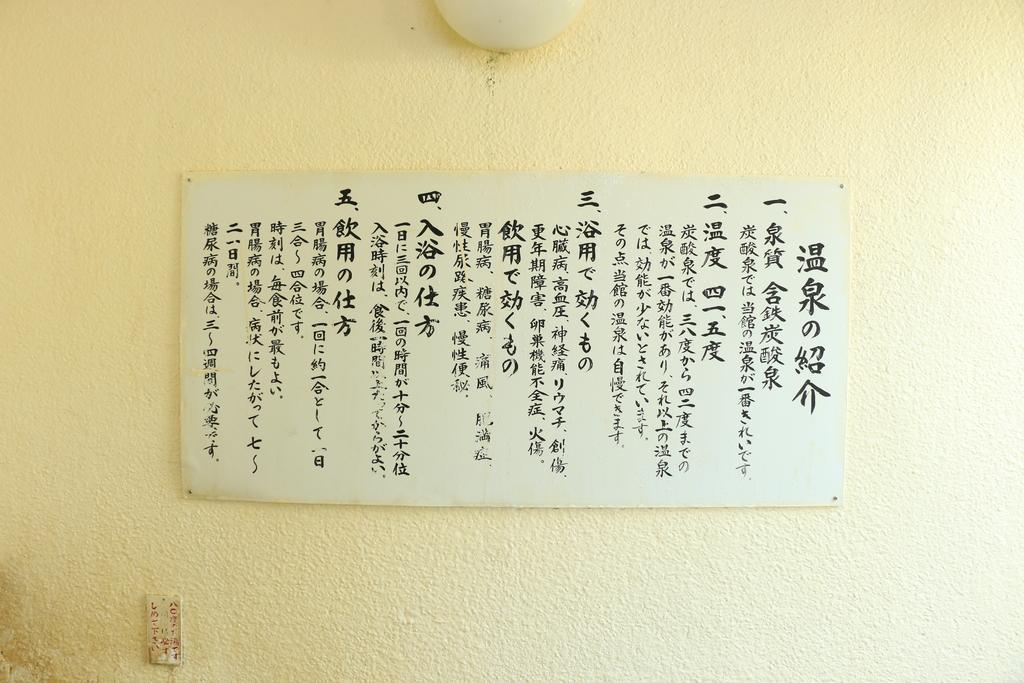 温泉の紹介
一、泉質 含鉄炭酸泉
炭酸泉では当館の温泉が一番きれいです。
二、温度 四一、五度
炭酸泉では、三八度から四二度までの
温泉が一番効能があり、それ以上の温泉
では、効能が少ないとされています。
その点当館の温泉は自慢できます。
三、浴用で効くもの
心臓病、高血圧、神経痛、リウマチ、創傷、
更年期障害、卵巣機能不全症、火傷。
飲用で効くもの
胃腸病、糖尿病、痛風、肥満症、
慢性尿路疾患、慢性便秘。
四、入浴の仕方
一日に三回以内で、一回の時間が十分〜二十分位
入浴時刻は、食後一時間以上たってからがよい。
五、飲用の仕方
胃腸病の場合、一回に約一合として、一日
三合〜四合位です。
時刻は、毎食前が最もよい。
胃腸病の場合、病状にしたがって 七〜
二一日間。
糖尿病の場合は、三〜四週間が必要です。
しめて下さい